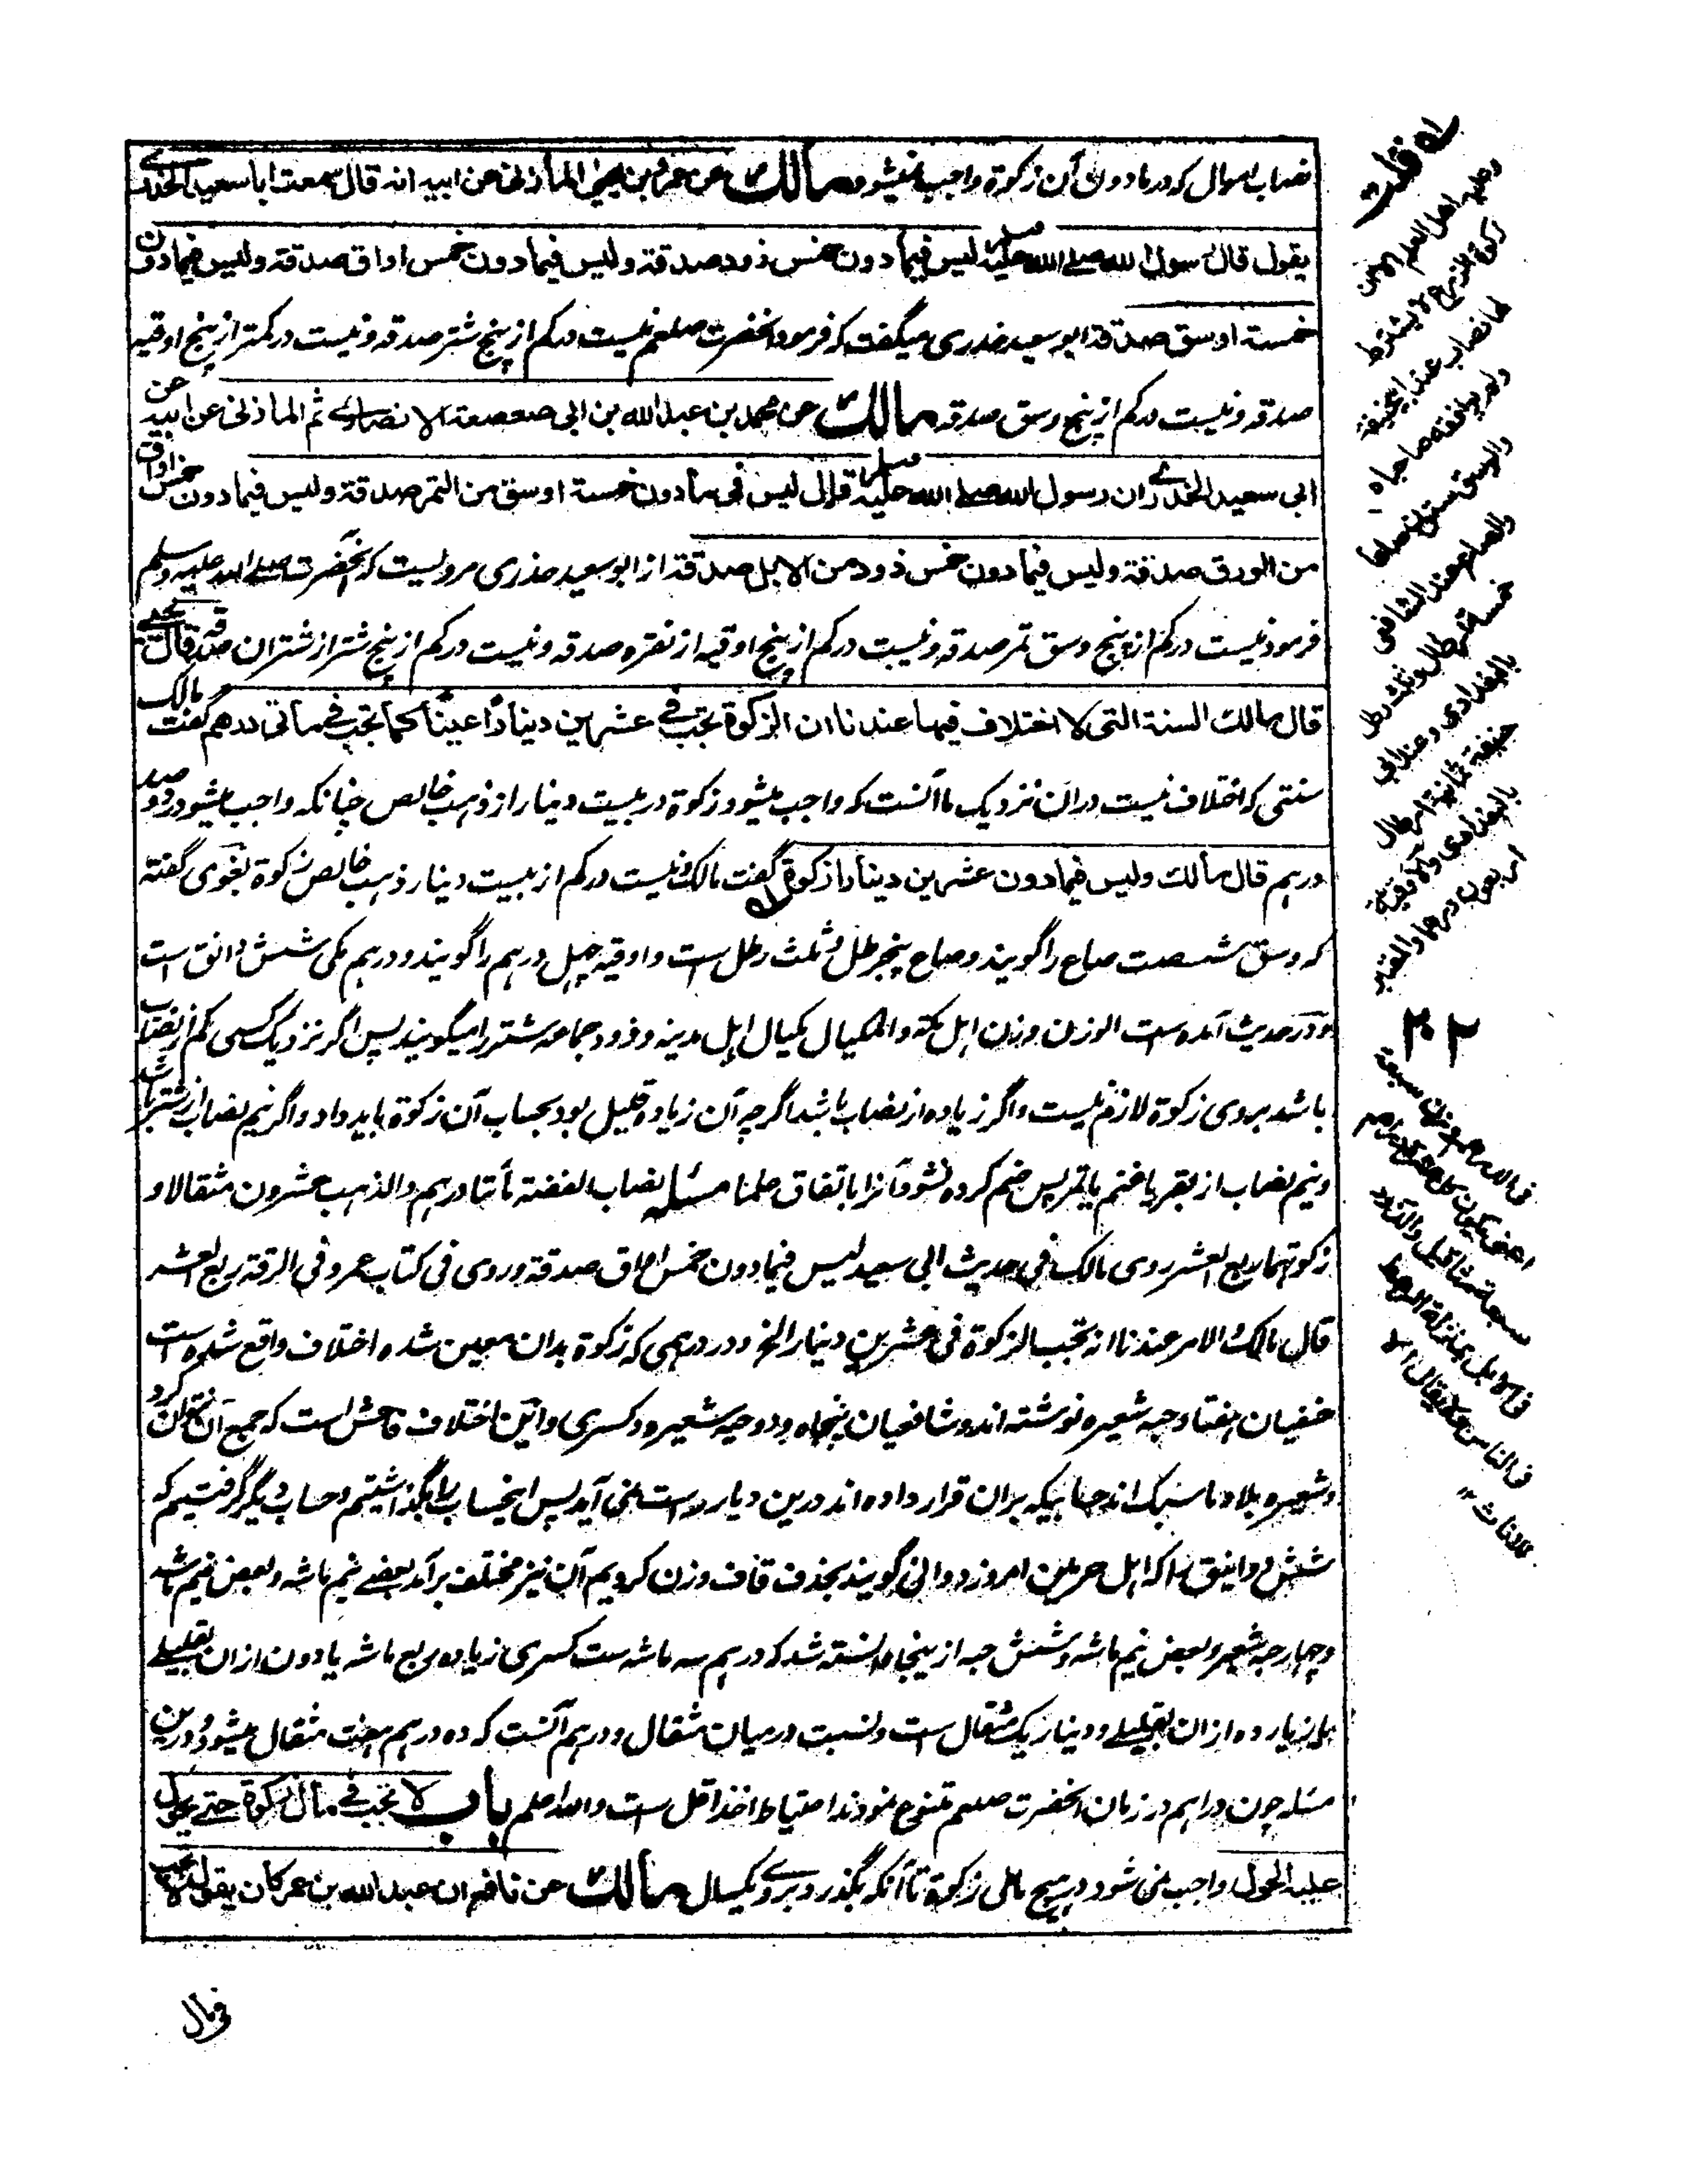 نصاب اموال که در مادون آن زکوة واجب نمیشود مالك عن عمرو بن یحیی المازنی عن ابیه انه قال سمعت ابا سعید الخدری
یقول قال رسول الله صلی الله علیه وسلم لیس فیما دون خمس ذود صدقة ولیس فیما دون خمس اواق صدقة ولیس فیما دون
خمسة اوسق صدقة ابو سعید خدری میگفت که فرمود آنحضرت صلعم نیست در کم از پنج شتر صدقه و نیست در کمتر از پنج اوقیه
صدقه و نیست در کم از پنج وسق صدقه مالك عن محمد بن عبد الله بن ابی صعصعة الانصاری ثم المازنی عن ابیه عن
ابی سعید الخدری ان رسول الله صلی الله علیه وسلم قال لیس فی ما دون خمسة اوسق من التمر صدقة ولیس فیما دون خمس اواق
من الورق صدقة ولیس فیما دون خمس ذود من الابل صدقة از ابو سعید خدری مرویست که آنحضرت صلی الله علیه وسلم
فرمود نیست در کم از پنج وسق تمر صدقه و نیست در کم از پنج اوقیه از نقره صدقه و نیست در کم از پنج شتر از شتران صدقه قال یحیی
قال مالك السنة التی لا اختلاف فیها عندنا ان الزکوة تجب فی عشرین دینارا عینا کما تجب فی مائتی درهم گفت مالک
سنتی که اختلاف نیست در آن نزدیک ما آنست که واجب میشود زکوة در بیست دینار از ذهب خالص چنانکه واجب میشود در دو صد
درهم قال مالك ولیس فیما دون عشرین دینارا زکوة گفت مالک و نیست در کم از بیست دینار ذهب خالص زکوة بغوی گفته
که وسق شصت صاع را گویند و صاع پنج رطل و ثلث رطل است و اوقیه چهل درهم را گویند و درهم مکی شش دانق است
و در حدیث آمده است الوزن وزن اهل مکه والمکیال مکیال اهل مدینه و ذود جماعه شتر را میگویند پس اگر نزدیک کسی کم از نصاب
باشد بر وی زکوة لازم نیست و اگر زیاده از نصاب باشد اگر چه آن زیاده قلیل بود بحساب آن زکوة باید داد و اگر نیم نصاب از شتر باشد
و نیم نصاب از بقر یا غنم یا تمر پس ضم کرده نشود آنرا باتفاق علما مسئله نصاب الفضة مأتا درهم والذهب عشرون مثقالا و
زکوتهما ربع العشر روی مالک فی حدیث ابی سعید لیس فیما دون خمس اواق صدقة وروی فی کتاب عمر وفی الرقة ربع العشر
قال مالک الامر عندنا انه تجب الزکوة فی عشرین دینارا الخ و در درهمی که زکوة بدان معین شده اختلاف واقع شده است
حنفیان هفتاد حبه شعیره نوشته اند و شافعیان پنجاه و دو حبه شعیره و کسری و این اختلاف فاحش است که جمع آن نتوان کرد
و شعیره بلاد ما سبک اند حسابیکه بر ان قرار داده اند درین دیار راست نمی آید پس این حساب را بگذاشتیم و حساب دیگر گرفتیم که
شش دوانیق را که اهل حرمین امروز دوانی گویند بحذف قاف وزن کردیم آن نیز مختلف برآمد بعضے نیم ماشه و بعض نیم ماشه
و چهار حبه شعیر و بعض نیم ماشه و شش حبه از ینجا دانسته شد که درهم سه ماشه است کسری زیاده ربع ماشه یا دون از ان بقلیلے
یا زیاده از ان بقلیلے و دینار یک مثقال است و نسبت درمیان مثقال و درهم آنست که ده درهم هفت مثقال میشود و درین
مسئله چون دراهم در زمان آنحضرت صلعم متنوع بودند احتیاط اخذ اقل است والله اعلم باب لا تجب فی مال زکوة حتی یحول
علیه الحول واجب نمی شود در هیچ مالی زکوة تا آنکه بگذرد بر وی یکسال مالك عن نافع ان عبد الله بن عمر کان یقول لا تجب
فی مال
له قلت
وعلیه اهل العلم الا فی
زکوة الزرع لا یشترط
لها نصاب عند ابی حنیفة
وقد خالفه صاحباه
والوسق ستون صاعا
والصاع عند الشافعی
خمسة ارطال وثلث رطل
بالبغدادی وعند ابی
حنیفة ثمانیة ارطال
بالبغدادی والاوقیة
اربعون درهما والمعتبر
۲۰۲
فی الدراهم وزن سبعة
اعنی یکون کل عشرة دراهم
سبعة مثاقیل والذود
فی الابل بمنزلة الرهط
فی الناس ولا یقال الا
للاناث ۱۲